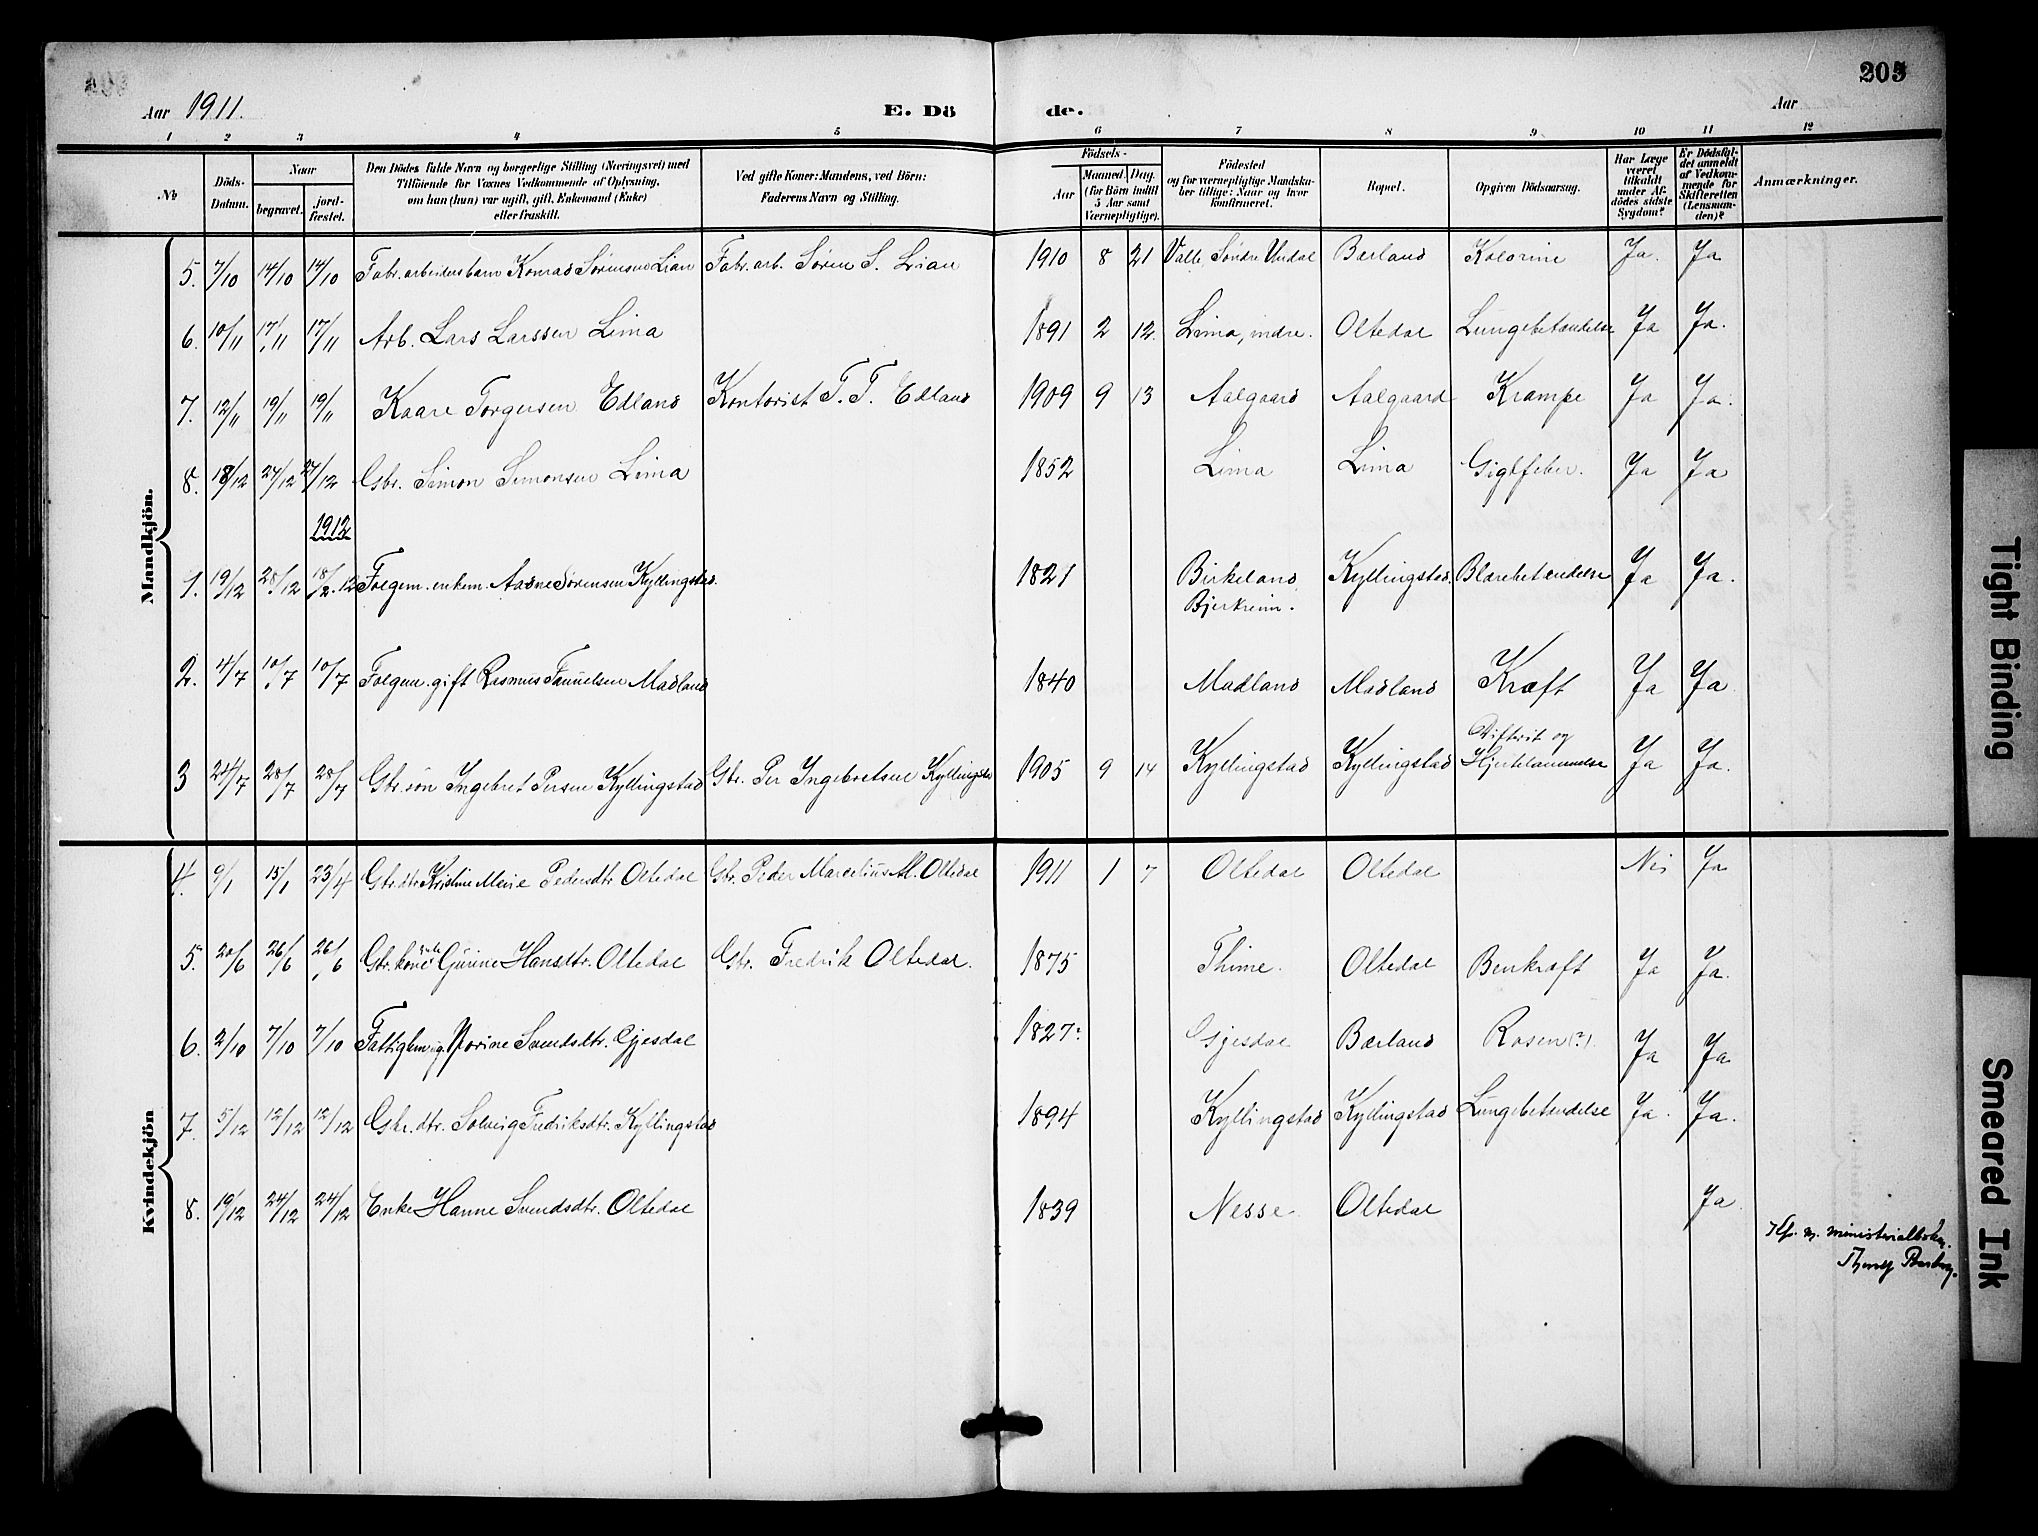 203
Aar 1911. E. Dö de. Aar
1 2 3 4 5 6 7 8 9 10 11 12
No
Döds-Datum.
Naar
begravet.
jord-fæstet.
Den Dödes fulde Navn og borgerlige Stilling (Næringsvei) med
Tilföiende for Voxnes Vedkommende af Oplysning,
om han (hun) var ugift, gift, Enkemand (Enke)
eller fraskilt.
Ved gifte Koner: Mandens, ved Börn:
Faderens Navn og Stilling.
Födsels-
Aar
Maaned. Dag.
(for Börn indtil
5 Aar samt
Værnepligtige).
Födested
og for værnepligtige Mandska-
ber tillige: Naar og hvor
konfirmeret.
Bopæl.
Opgiven Dödsaarsag.
Har Læge
været
tilkaldt
under Af-
dödes sidste
Sygdom?
Er Dödsfal-
det anmeldt
af Vedkom-
mende for
Skifteretten
(Lensman-
den)?
Anmærkninger.
Mandkjön.
5. 7/10 14/10 14/10 Fabr.arbeidersbarn Konrad Sørensen Lian Fabr.arb. Søren S. Lian 1910 8 21 Valle, Søndre Undal Bærland Kolorine Ja. Ja
6. 10/11 17/11 17/11 Arb. Lars Larssen Lima 1891 2 12. Lima, indre. Oltedal Lungebetændelse Ja Ja.
7. 12/11 19/11 19/11 Kaare Torgersen Edland Kontorist T. T. Edland 1909 9 13 Aalgaard Aalgaard Krampe Ja Ja.
8. 18/12 27/12 27/12 Gbr. Simon Simonsen Lima 1852 Lima Lima Gigtfeber. Ja Ja
1912
1. 19/12 28/12 18/2.12 Folgem. enkem. Aadne Sørensen Kyllingstad. 1821 Birkeland Kyllingstad. Blærebetændelse Ja Ja.
Bjerkreim.
2. 4/7 10/7 10/7 Folgem. gift Rasmus Samuelsen Madland 1840 Madland Madland Kræft Ja Ja
3 24/7 28/7 28/7 Gbr.søn Ingebret Persen Kyllingstad Gbr. Per Ingebretsen Kyllingsta 1905 9 14 Kyllingstad Kyllingstad Diftrit og Hjertelammelse Ja Ja.
Kvindekjön
4. 9/1 15/1 23/4 Gbr.dtr Kristine Marie Pedersdtr Oltedal Gbr. Peder Marcelius M. Oltedal 1911 1 7 Oltedal Oltedal Nei Ja
5. 20/6 26/6 26/6 Gbr.kone Gurine Hansdtr. Oltedal Gbr. Fredrik Oltedal. 1875 Thime. Oltedal Benkræft Ja Ja.
6. 2/10 7/10 7/10 Fattiglem ug. Norine Svendsdtr. Gjesdal 1827. Gjesdal Bærland Rosen (?). Ja Ja.
7. 5/12 12/12 12/12 Gbr.dtr. Solveig Fredriksdtr. Kyllingstad 1894 Kyllingstad Kyllingstad Lungebetændelse Ja. Ja.
8. 19/12 24/12 24/12 Enke Hanne Svendsdtr. Oltedal 1839 Nesse Oltedal Ja
m. ministerialboken.
Tight Binding
Smeared Ink